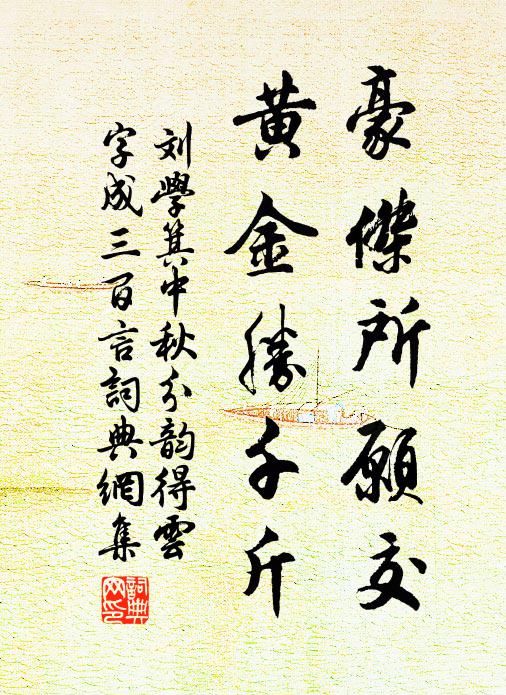 豪傑所願交
黃金勝千斤
刘學箕中秋分韵得雲
字成三百言詞典網集
詞典網印